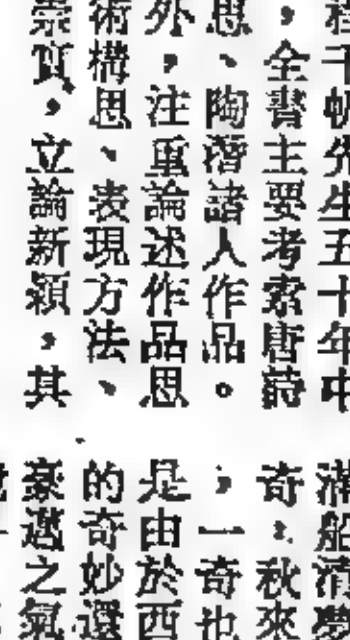 程千帆先生五十年中
，全書主要考索唐詩
思、陶潛諸人作品。
外，注重論述作品思
術構思、表現方法、
崇實，立論新穎，其
溝船清夢
奇：秋來
，一奇也
是由於西
的奇妙還
豪邁之氣